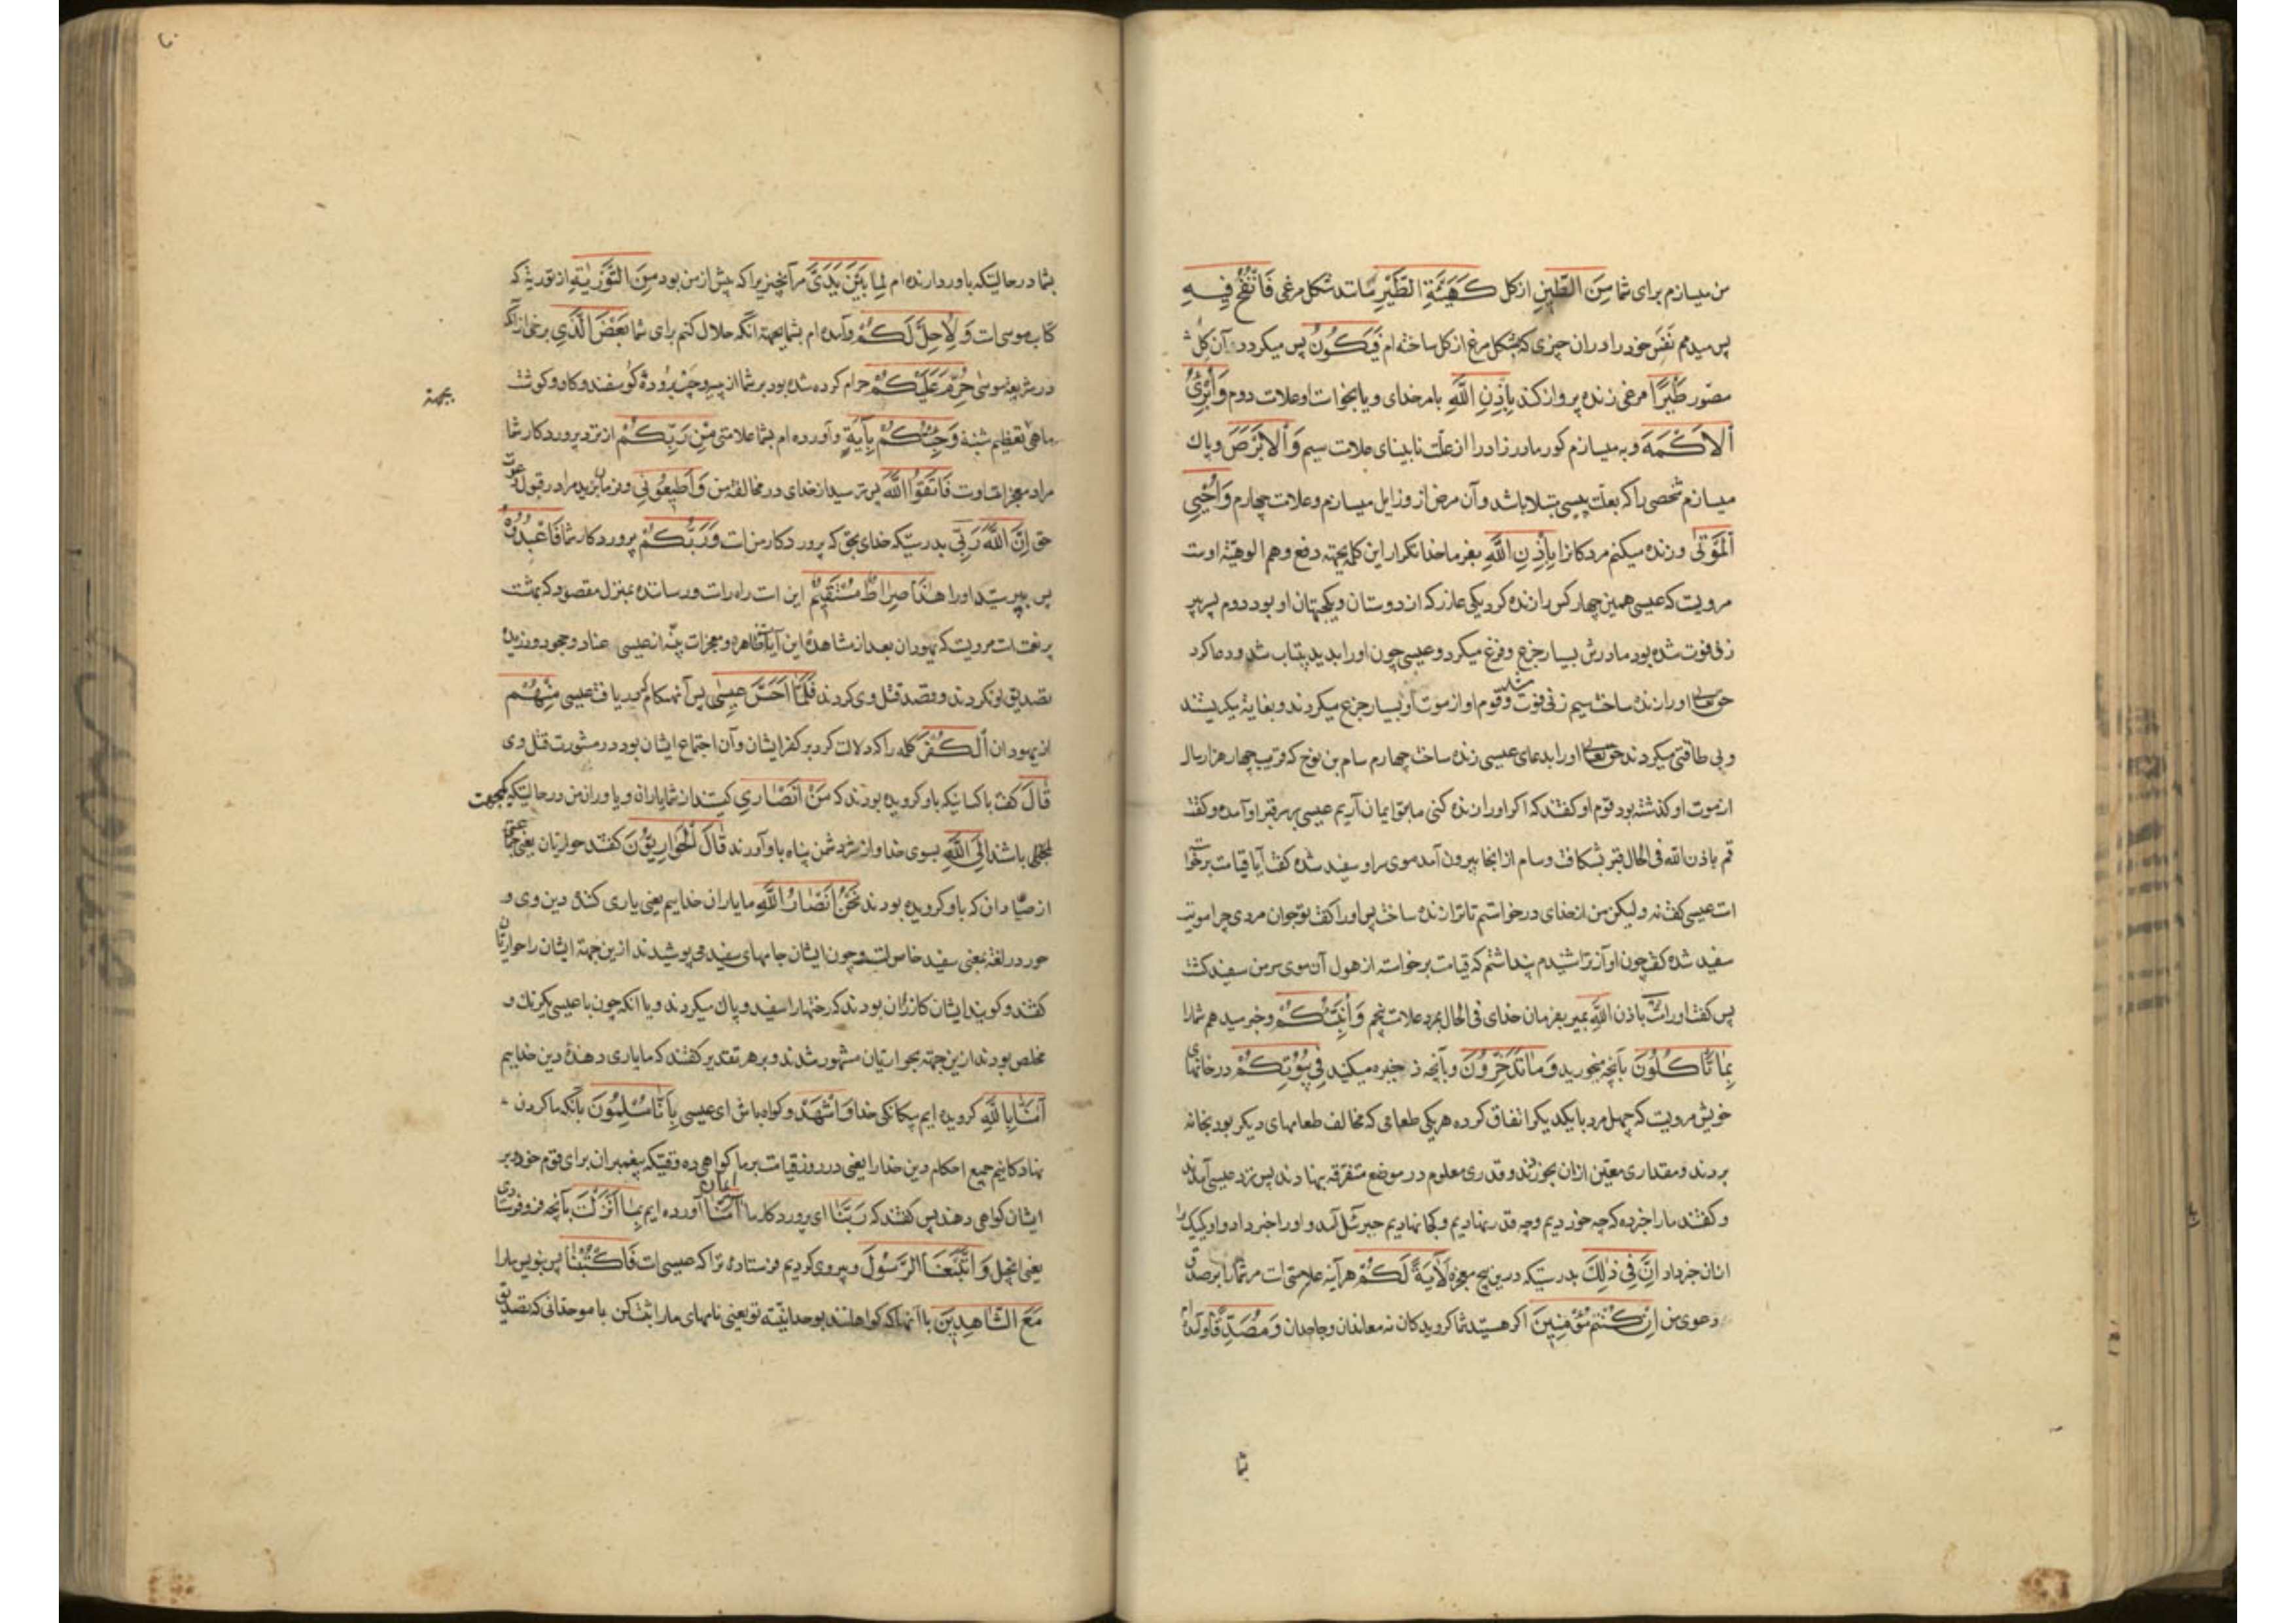 من میسازم برای شما مِنَ الطّینِ از کل کَهَیْئَةِ الطَّیْرِ مانند شکل مرغی فَاَنْفُخُ فِیهِ
پس میدمم نَفَس خود را در ان چیزی که بشکل مرغ از کل ساخته ام فَیَکُونُ پس میکردد آن کل
مصوّر طَیْرًا مرغی زنده پرواز کند بِاِذْنِ اللّٰهِ بامر خدای و یا بخواست او علامت دوم وَاُبْرِئُ
اَلاَکْمَهَ و به میسازم کور مادرزاد را از علّت نابینای علامت سیم وَاَلاَبْرَصَ و پاک
میسازم شخصی را که بعلّت پیسی مبتلا باشد و آن مرض از و زایل میسازم و علامت چهارم وَاُحْیِی
اَلْمَوْتٰی و زنده میکنم مردکانرا بِاِذْنِ اللّٰهِ بفرما خدا تکرار این کلمه بجهته دفع وهم الوهیّة اوست
مرویست که عیسی همین چهار کس را زنده کرد یکی عازر که از دوستان و یکجهتان او بود دوم پسر پیر
زنی فوت شده بود مادرش بسیار جزع و فزع میکرد و عیسی چون او را بدید بیتاب شد و دعا کرد
حق تعالی او را زنده ساخت سیم زنی فوت شد و قوم او از موت او بسیار جزع میکردند و بغایة میکریستند
و بی طاقتی میکردند حق تعالی او را بدعای عیسی زنده ساخت چهارم سام بن نوح که قریب چهار هزار سال
از موت او کذشته بود قوم او کفتند که اکر او را زنده کنی ما بتو ایمان آریم عیسی بر سر قبر او آمده و کفت
قم باذن الله فی الحال قبر بشکافت و سام از انجا بیرون آمد موی سر او سفید شده کفت آیا قیامت برخوا
است عیسی کفت نه و لیکن من از خدای درخواستم تا ترا زنده ساخت پس او را کفت تو جوان مردی چرا مویت
سفید شده کفت چون آواز ترا شنیدم پنداشتم که قیامت برخواسته از هول آن موی سر من سفید کشت
پس کفت او را مت باذن اللّٰهِ بمیر بفرمان خدای فی الحال بمرد علامت پنجم وَاُنَبِّئُکُمْ و خبر میدهم شما را
بِمٰا تَأکُلُونَ بآنچه میخورید وَمٰا تَدَّخِرُونَ و بآنچه ذخیره میکنید فِی بُیُوتِکُمْ در خانهای
خویش مرویست که چهل مرد با یکدیکر اتفاق کرده هر یکی طعامی که مخالف طعامهای دیکر بود بخانه
بردند و مقداری معیّن ازان بخوردند و قدری معلوم در موضع متفرّقه بنهادند پس نزد عیسی آمدند
و کفتند ما را خبر ده که چه خوردیم و چه قدر بنهادیم و کجا نهادیم جبرئیل آمد و او را خبر داد و او یکیک را
ازان خبر داد اِنَّ فِی ذٰلِکَ بدرستیکه درین پنج معجزه لَاٰیَةً لَکُمْ هر آینه علامتی است مر شما را بر صدق
دعوی من اِنْ کُنْتُمْ مُؤْمِنِینَ اکر هستید شما کرویدکان نه معاندان و جاحدان وَمُصَدِّقًا و آمده ام
بشما
بشما در حالیتکه باور دارنده ام لِمٰا بَیْنَ یَدَیَّ مر آنچیزیرا که پیش از من بود مِنَ التَّوْرٰیةِ از توریة که
کتاب موسی است وَلِاُحِلَّ لَکُمْ و آمده ام بشما بجهة آنکه حلال کنم برای شما بَعْضَ الَّذِی برخی از آنکه
در شریعة موسی حُرِّمَ عَلَیْکُمْ حرام کرده شده بود بر شما از پیه و چرب رودهٔ کوسفند و کاو و کوشت
بجهة
ماهی تعظیم شنبه وَجِئْتُکُمْ بِاٰیَةٍ و آورده ام بشما علامتی مِنْ رَبِّکُمْ از نزد پروردکار شما
مراد معجزاتست فَاتَّقُوا اللّٰهَ پس بترسید از خدای در مخالفة من وَاَطِیعُونِی و فرمان برید مرا در قبول دعوت
حق اِنَّ اللّٰهَ رَبِّی بدرستیکه خدای بحق که پروردکار من است وَرَبُّکُمْ پروردکار شما فَاعْبُدُوهُ
پس بپرستید او را هٰذَا صِرٰاطٌ مُسْتَقِیمٌ این است راه راست و رساننده بمنزل مقصود که بهشت
پر نعمت است مرویست که یهودان بعد از مشاهدهٔ این آیات ظاهره و معجزات بیّنه از عیسی عناد و جحود ورزیده
تصدیق او نکردند و قصد قتل وی کردند فَلَمّٰا اَحَسَّ عِیسٰی پس آنهنکام که دریافت عیسی مِنْهُمُ
از یهودان اَلْکُفْرَ کلمه را که دلالت کرد بر کفر ایشان و آن اجتماع ایشان بود در مشورت قتل وی
قٰالَ کفت با کسانیکه باو کرویده بودند که مَنْ اَنْصٰارِی کیستند از شما یاران و یاوران من در حالیتکه ملتجی
باشند اِلَی اللّٰهِ بسوی خدا و از شرّ دشمن پناه باو آورند قٰالَ الْحَوٰارِیُّونَ کفتند حواریان یعنی جماعتی
از صیّادان که باو کرویده بودند نَحْنُ اَنْصٰارُ اللّٰهِ ما یاران خداییم یعنی یاری کنندهٔ دین وی و
حور در لغة بمعنی سفید خالص است و چون ایشان جامهای سفید می پوشیدند ازین جهة ایشان را حواریان
کفتند و کویند ایشان کازران بودند که رختها را سفید و پاک میکردند و یا آنکه چون با عیسی یکرنک و
مخلص بودند ازین جهة بحواریان مشهور شدند و بر هر تقدیر کفتند که ما یاری دهندهٔ دین خداییم
اٰمَنّٰا بِاللّٰهِ کرویده ایم بیکانکی خدا وَاشْهَدْ و کواه باش ای عیسی بِاَنّٰا مُسْلِمُونَ بآنکه ما کردن
نهادکانیم جمیع احکام دین خدا را یعنی در روز قیامت بر ما کواهی ده وقتیکه پیغمبران برای قوم خود بر
ایشان کواهی دهند پس کفتند که رَبَّنٰا ای پروردکار ما اٰمَنّٰا ایمان آورده ایم بِمٰا اَنْزَلْتَ بآنچه فرو فرستادی
یعنی انجیل وَاتَّبَعْنَا الرَّسُولَ و پیروی کردیم فرستادهٔ ترا که عیسی است فَاکْتُبْنٰا پس بنویس ما را
مَعَ الشّٰاهِدِینَ با آنها که کواهانند بوحدانیّت تو یعنی نامهای ما را ثبت کن با موحدانی که تصدیق